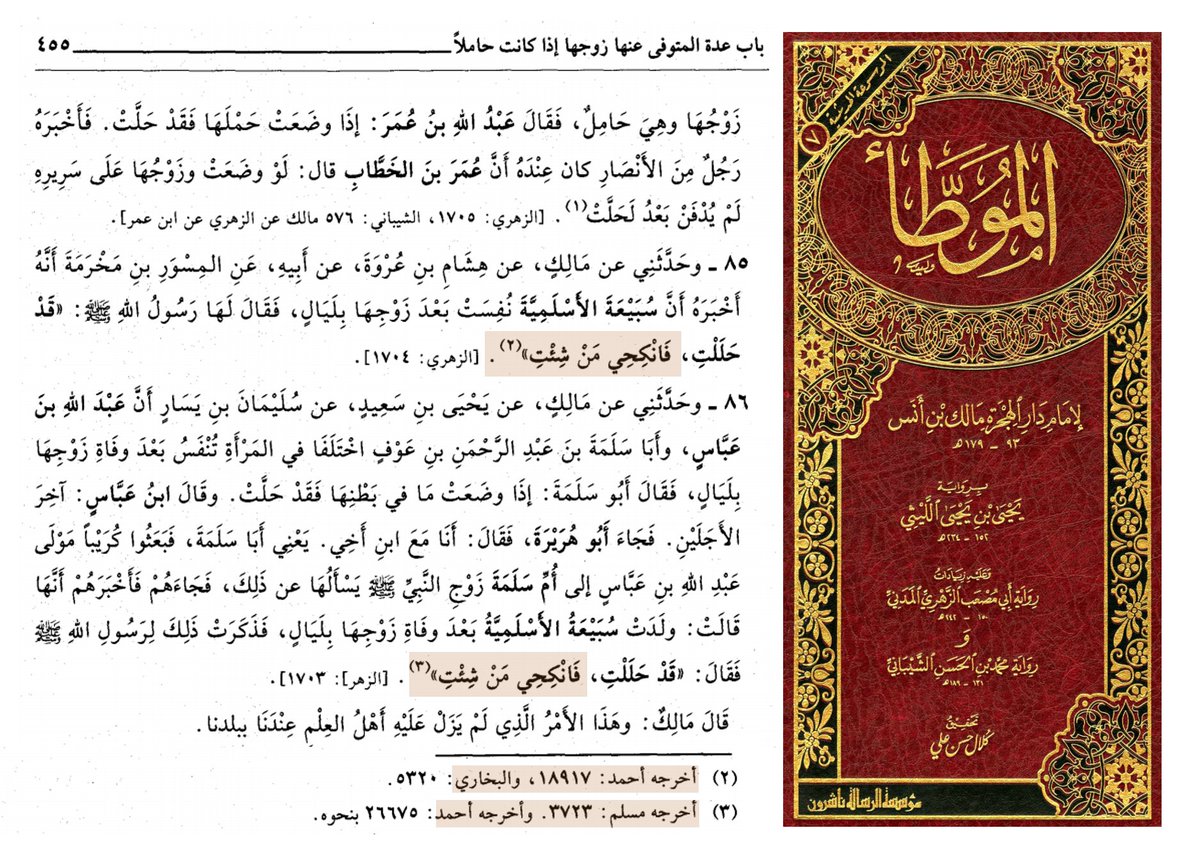 باب عدة المتوفى عنها زوجها إذا كانت حاملاً ٤٥٥
زَوْجُهَا وهِيَ حَامِلٌ، فَقَالَ عَبْدُ اللهِ بنُ عُمَرَ: إذَا وضَعَتْ حَمْلَهَا فَقَدْ حَلَّتْ. فَأَخْبَرَهُ
رَجُلٌ مِنَ الأَنْصَارِ كان عِنْدَهُ أَنَّ عُمَرَ بنَ الخَطَّابِ قال: لَوْ وضَعَتْ وزَوْجُهَا عَلَى سَرِيرِهِ
لَمْ يُدْفَنْ بَعْدُ لَحَلَّتْ(١). [الزهري: ١٧٠٥، الشيباني: ٥٧٦ مالك عن الزهري عن ابن عمر].
٨٥ ـ وحَدَّثَنِي عن مَالِكٍ، عن هِشَامِ بنِ عُرْوَةَ، عن أَبِيهِ، عَنِ المِسْوَرِ بنِ مَخْرَمَةَ أَنَّهُ
أَخْبَرَهُ أَنَّ سُبَيْعَةَ الأَسْلَمِيَّةَ نُفِسَتْ بَعْدَ زَوْجِهَا بِلَيَالٍ، فَقَالَ لَهَا رَسُولُ اللهِ ﷺ: «قَدْ
حَلَلْتِ، فَانْكِحِي مَنْ شِئْتِ»(٢). [الزهري: ١٧٠٤].
٨٦ ـ وحَدَّثَنِي عن مَالِكٍ، عن يَحْيَى بنِ سَعِيدٍ، عن سُلَيْمَانَ بنِ يَسَارٍ أَنَّ عَبْدَ اللهِ بنَ
عَبَّاسٍ، وأَبَا سَلَمَةَ بنَ عَبْدِ الرَّحْمَنِ بنِ عَوْفٍ اخْتَلَفَا في المَرْأَةِ تُنْفَسُ بَعْدَ وفَاةِ زَوْجِهَا
بِلَيَالٍ، فَقَالَ أَبُو سَلَمَةَ: إذَا وضَعَتْ مَا في بَطْنِهَا فَقَدْ حَلَّتْ. وقَالَ ابنُ عَبَّاسٍ: آخِرَ
الأَجَلَيْنِ. فَجَاءَ أَبُو هُرَيْرَةَ، فَقَالَ: أَنَا مَعَ ابنِ أَخِي. يَعْنِي أَبَا سَلَمَةَ، فَبَعَثُوا كُرَيْباً مَوْلَى
عَبْدِ اللهِ بنِ عَبَّاسٍ إلى أُمِّ سَلَمَةَ زَوْجِ النَّبِيِّ ﷺ يَسْأَلُهَا عن ذَلِكَ، فَجَاءَهُمْ فَأَخْبَرَهُمْ أَنَّهَا
قَالَتْ: ولَدَتْ سُبَيْعَةُ الأَسْلَمِيَّةُ بَعْدَ وفَاةِ زَوْجِهَا بِلَيَالٍ، فَذَكَرَتْ ذَلِكَ لِرَسُولِ اللهِ ﷺ
فَقَالَ: «قَدْ حَلَلْتِ، فَانْكِحِي مَنْ شِئْتِ»(٣). [الزهر]: ١٧٠٣].
قَالَ مَالِكٌ: وهَذَا الأَمْرُ الَّذِي لَمْ يَزَلْ عَلَيْهِ أَهْلُ العِلْمِ عِنْدَنَا ببلدنا.
(٢) أخرجه أحمد: ١٨٩١٧، والبخاري: ٥٣٢٠.
(٣) أخرجه مسلم: ٣٧٢٣. وأخرجه أحمد: ٢٦٦٧٥ بنحوه.
٧
المُوَطَّأ
لإمام دار الهجرة مالك بن أنس
٩٣ - ١٧٩هـ
برواية
يحيى بن يحيى الليثي
١٥٢ - ٢٣٤هـ
وعليه زيادات
رواية أبي مصعب الزهري المدني
١٥٠ - ٢٤٢هـ
و
رواية محمد بن الحسن الشيباني
١٣١ - ١٨٩هـ
تحقيق
كلال حسن علي
مؤسسة الرسالة ناشرون